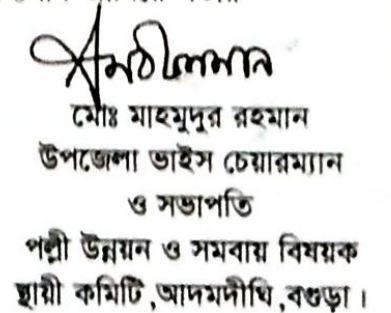 মোঃ মাহমুদুর রহমান
উপজেলা ভাইস চেয়ারম্যান
ও সভাপতি
পল্লী উন্নয়ন ও সমবায় বিষয়ক
স্থায়ী কমিটি ,আদমদীঘি ,বগুড়া ।